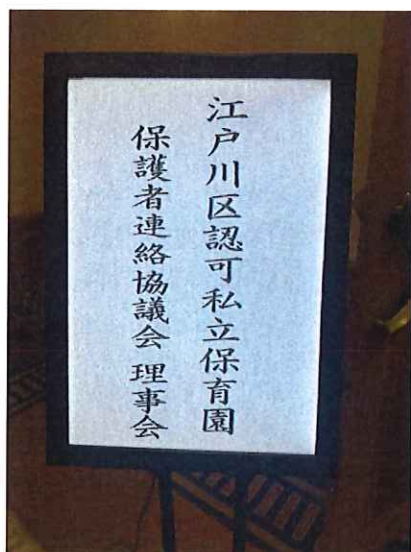 江戸川区認可私立保育園
保護者連絡協議会 理事会